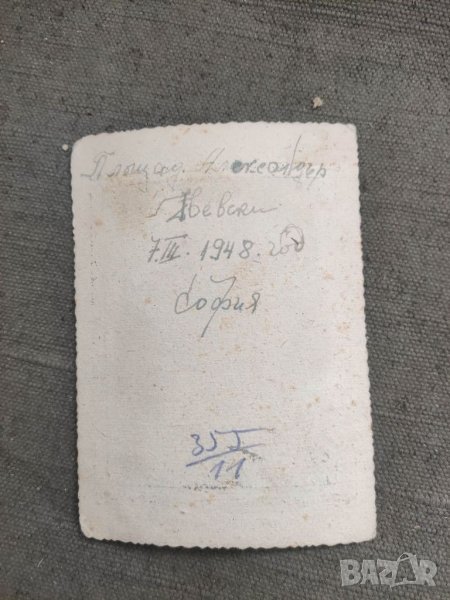 Площад. Александър
Невски
7.III. 1948. год
София
35 I
11
BAZAR